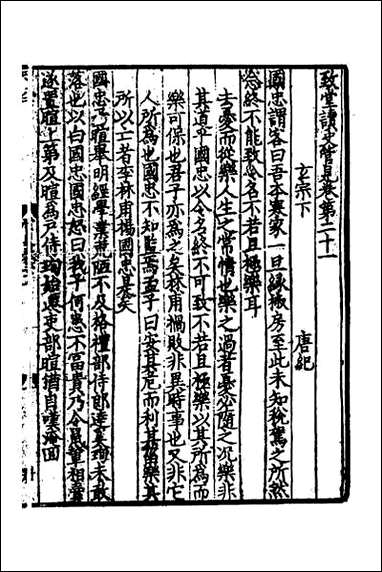 致堂讀史管見卷第二十一
玄宗下　唐紀
國忠謂客曰吾本寒家一旦緣椒房至此未知稅駕之所然
念終不能致令名不若且極樂耳
去憂而從樂人生之常情也樂之過者憂必隨之况樂非
其道乎國忠以令名終不可致不若且極樂以其所為而
樂可保也君子亦為之矣林甫禍敗非異時事也又非它
人所為也國忠不知監焉孟子曰安其危而利其菑樂其
所以亡者李林甫楊國忠是矣
國忠子暄舉明經學業荒陋不及格禮部侍郎達奚珣未敢
落也以白國忠國忠怒曰我子何患不冨貴乃令鼠輩相賣
遂置暄上第及暄為戶侍珣始遷吏部暄猶自嘆淹回